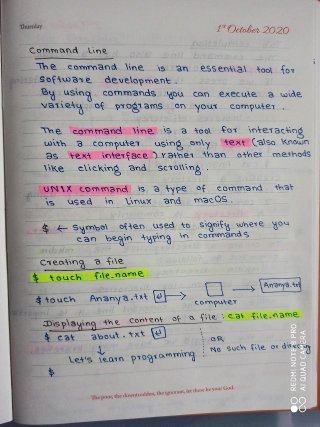 Thursday
1st October 2020
Command Line
The command line is an essential tool for
software development.
By using commands you can execute a wide
variety of programs on your computer.
The command line is a tool for interacting
with a computer using only text (also known
as text interface) rather than other methods
like clicking and scrolling.
UNIX command is a type of command that
is used in Linux and macOS.
$ ← Symbol often used to signify where you
can begin typing in commands
Creating a file
$ touch file.name
$ touch Ananya.txt ↵ → → Ananya.txt
computer
Displaying the content of a file : cat file.name
$ cat about.txt ↵ OR
↓ No such file or directory
Let's learn programming
$
The poor, the downtrodden, the ignorant, let these be your God.
REDMI NOTE PRO
AI QUAD CAMERA